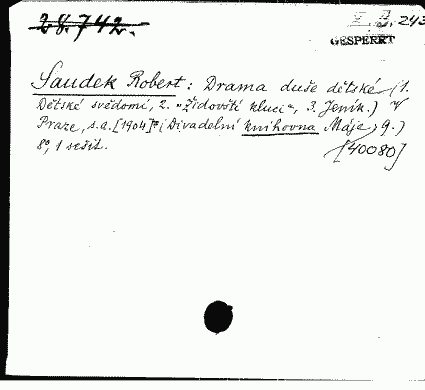 28.742.
V. J. 243
GESPERRT
Saudek Robert: Drama duše dětské (1.
Dětské svědomí, 2. „Židovští kluci“, 3. Jeník.) V
Praze, s.a. [1904] (Divadelní knihovna Máje, 9.)
8°, 1 sešit.
[40080]